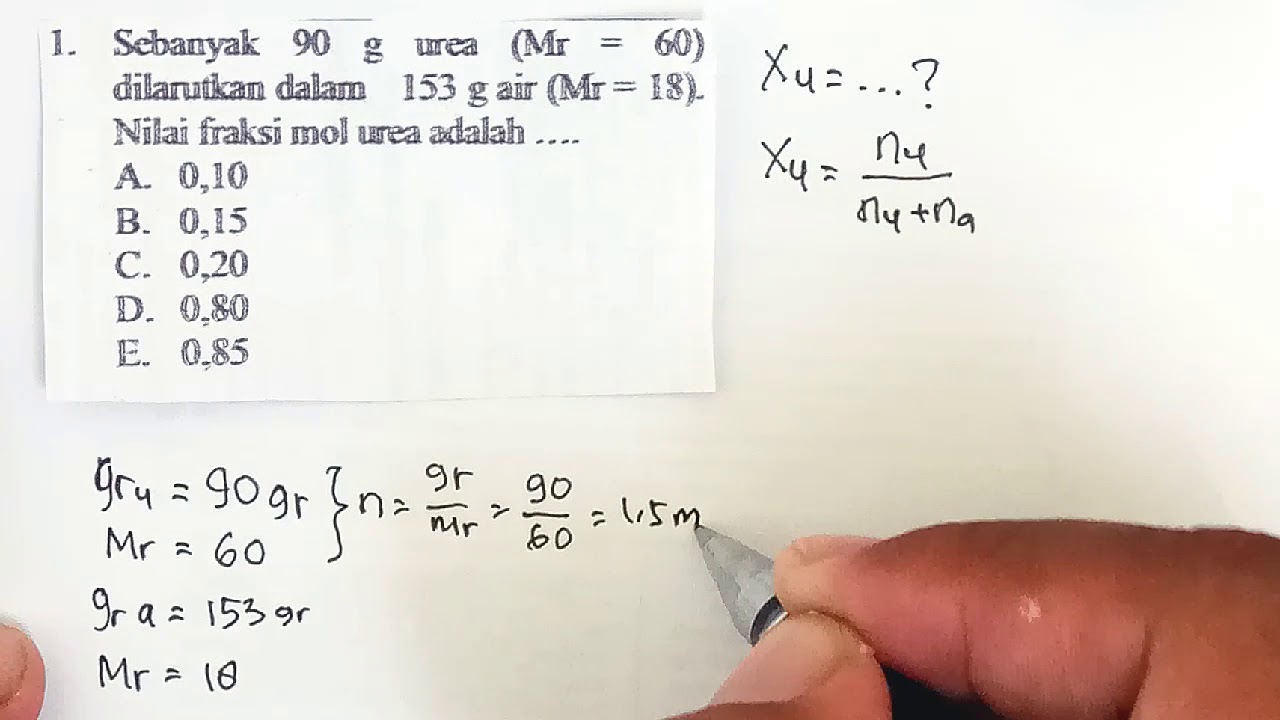 1. Sebanyak 90 g urea (Mr = 60)
dilarutkan dalam 153 g air (Mr = 18).
Nilai fraksi mol urea adalah ....
A. 0,10
B. 0,15
C. 0,20
D. 0,80
E. 0,85
Xu = ...?
Xu = nu / nu + na
gr u = 90 gr } n = gr / Mr = 90 / 60 = 1,5 m
Mr = 60
gr a = 153 gr
Mr = 18